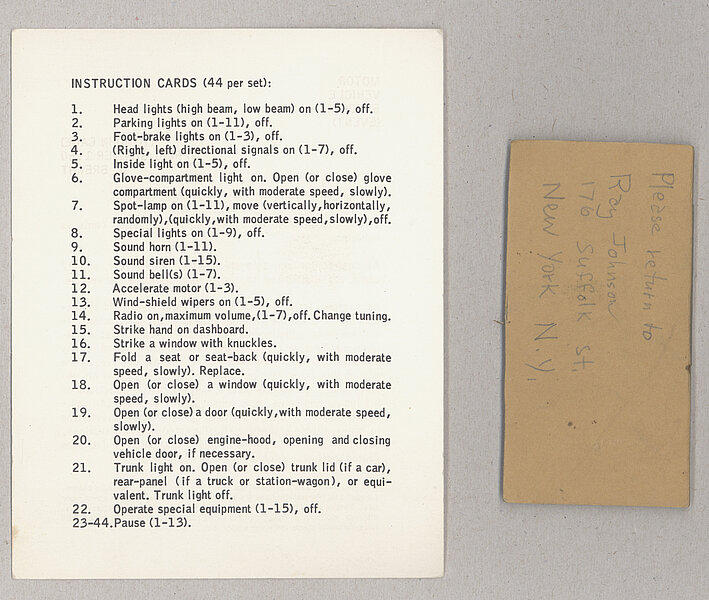 INSTRUCTION CARDS (44 per set):
1. Head lights (high beam, low beam) on (1-5), off.
2. Parking lights on (1-11), off.
3. Foot-brake lights on (1-3), off.
4. (Right, left) directional signals on (1-7), off.
5. Inside light on (1-5), off.
6. Glove-compartment light on. Open (or close) glove
compartment (quickly, with moderate speed, slowly).
7. Spot-lamp on (1-11), move (vertically,horizontally,
randomly),(quickly,with moderate speed,slowly),off.
8. Special lights on (1-9), off.
9. Sound horn (1-11).
10. Sound siren (1-15).
11. Sound bell(s) (1-7).
12. Accelerate motor (1-3).
13. Wind-shield wipers on (1-5), off.
14. Radio on,maximum volume,(1-7),off. Change tuning.
15. Strike hand on dashboard.
16. Strike a window with knuckles.
17. Fold a seat or seat-back (quickly, with moderate
speed, slowly). Replace.
18. Open (or close) a window (quickly, with moderate
speed, slowly).
19. Open (or close) a door (quickly,with moderate speed,
slowly).
20. Open (or close) engine-hood, opening and closing
vehicle door, if necessary.
21. Trunk light on. Open (or close) trunk lid (if a car),
rear-panel (if a truck or station-wagon), or equi-
valent. Trunk light off.
22. Operate special equipment (1-15), off.
23-44. Pause (1-13).
Please return to
Ray Johnson
176 Suffolk St.
New York N.Y.